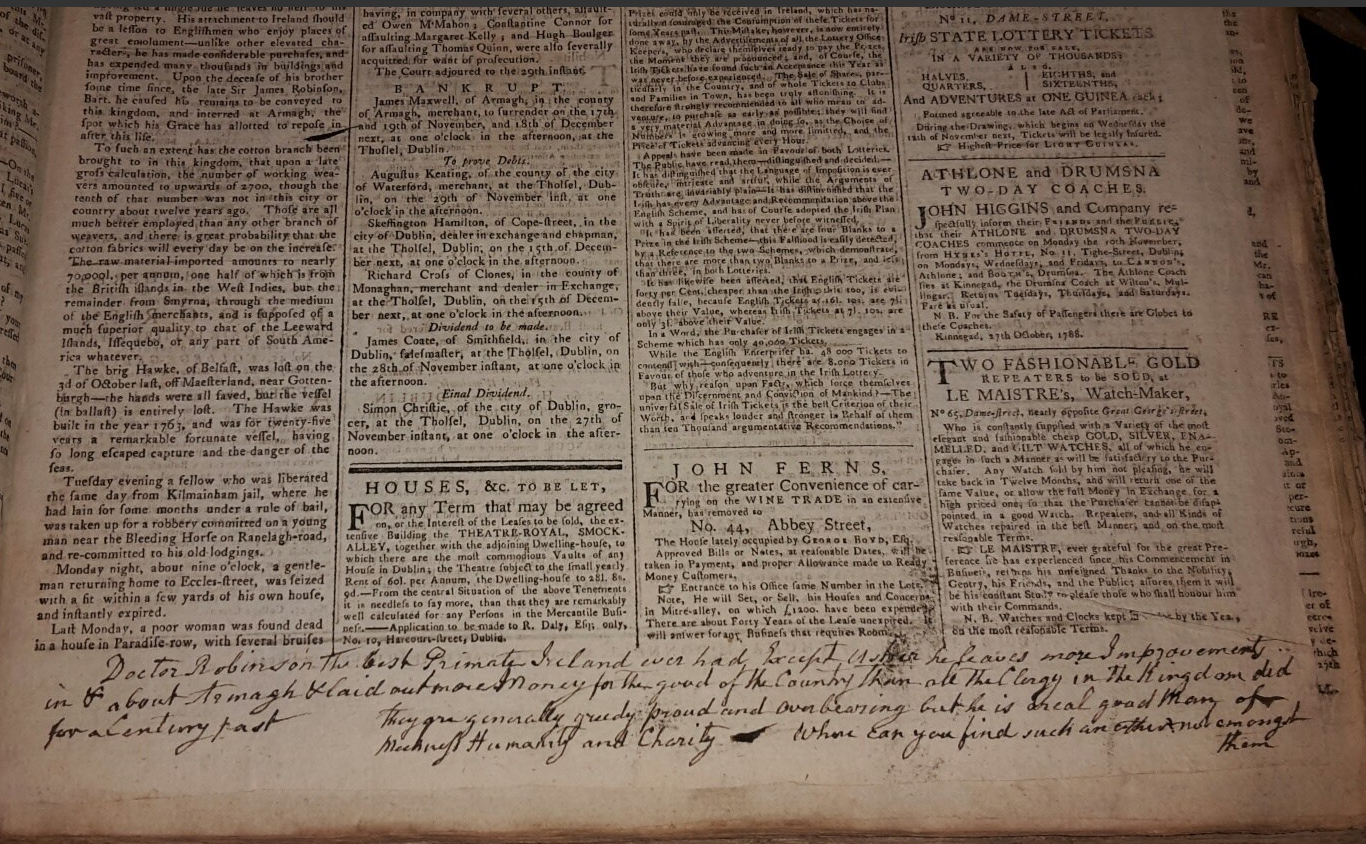 vast property. His attachment to Ireland should
be a lesson to Englishmen who enjoy places of
great emolument—unlike other elevated cha-
racters, he has made considerable purchases, and
has expended many thousands in buildings and
improvement. Upon the decease of his brother
some time since, the late Sir James Robinson,
Bart. he caused his remains to be conveyed to
this kingdom, and interred at Armagh, the
spot which his Grace has allotted to repose in
after this life.
To such an extent has the cotton branch been
brought to in this kingdom, that upon a late
gross calculation, the number of working wea-
vers amounted to upwards of 2700, though the
tenth of that number was not in this city or
country about twelve years ago. Those are all
much better employed than any other branch of
weavers, and there is great probability that the
cotton fabrics will every day be on the increase.
The raw material imported amounts to nearly
70,000l. per annum, one half of which is from
the British islands in the West Indies, but the
remainder from Smyrna, through the medium
of the English merchants, and is supposed of a
much superior quality to that of the Leeward
Islands, Issequebo, or any part of South Ame-
rica whatever.
The brig Hawke, of Belfast, was lost on the
3d of October last, off Maesterland, near Gotten-
burgh—the hands were all saved, but the vessel
(in ballast) is entirely lost. The Hawke was
built in the year 1763, and was for twenty-five
years a remarkable fortunate vessel, having
so long escaped capture and the danger of the
seas.
Tuesday evening a fellow who was liberated
the same day from Kilmainham jail, where he
had lain for some months under a rule of bail,
was taken up for a robbery committed on a young
man near the Bleeding Horse on Ranelagh-road,
and re-committed to his old lodgings.
Monday night, about nine o'clock, a gentle-
man returning home to Eccles-street, was seized
with a fit within a few yards of his own house,
and instantly expired.
Last Monday, a poor woman was found dead
in a house in Paradise-row, with several bruises
having, in company with several others, assault-
ed Owen M'Mahon; Constantine Connor for
assaulting Margaret Kelly; and Hugh Boulger
for assaulting Thomas Quinn, were also severally
acquitted for want of prosecution.
The Court adjourned to the 29th instant.
BANKRUPT.
James Maxwell, of Armagh, in the county
of Armagh, merchant, to surrender on the 17th
and 19th of November, and 18th of December
next, at one o'clock in the afternoon, at the
Tholsel, Dublin.
To prove Debts.
Augustus Keating, of the county of the city
of Waterford, merchant, at the Tholsel, Dub-
lin, on the 29th of November inst, at one
o'clock in the afternoon.
Skeffington Hamilton, of Cope-street, in the
city of Dublin, dealer in exchange and chapman,
at the Tholsel, Dublin, on the 15th of Decem-
ber next, at one o'clock in the afternoon.
Richard Cross of Clones, in the county of
Monaghan, merchant and dealer in Exchange,
at the Tholsel, Dublin, on the 15th of Decem-
ber next, at one o'clock in the afternoon.
Dividend to be made.
James Coate, of Smithfield, in the city of
Dublin, salesmaster, at the Tholsel, Dublin, on
the 28th of November instant, at one o'clock in
the afternoon.
Einal Dividend.
Simon Christie, of the city of Dublin, gro-
cer, at the Tholsel, Dublin, on the 27th of
November instant, at one o'clock in the after-
noon.
HOUSES, &c. TO BE LET,
FOR any Term that may be agreed
on, or the Interest of the Leases to be sold, the ex-
tensive Building the THEATRE-ROYAL, SMOCK-
ALLEY, together with the adjoining Dwelling-house, to
which there are the most commodious Vaults of any
House in Dublin; the Theatre subject to the small yearly
Rent of 60l. per Annum, the Dwelling-house to 28l. 8s.
9d.—From the central Situation of the above Tenements
it is needless to say more, than that they are remarkably
well calculated for any Persons in the Mercantile Busi-
ness.—Application to be made to R. Daly, Esq; only,
No. 10, Harcourt-street, Dublin.
Prizes could only be received in Ireland, which has na-
turally discouraged the Consumption of these Tickets for
some Years past. This Mistake, however, is now entirely
done away, by the Advertisements of all the Lottery Office
Keepers, who declare themselves ready to pay the Prizes,
the Moment they are pronounced; and, of Course, the
Irish Tickets have found such an Acceptance this Year as
was never before experienced. The Sale of Shares, par-
ticularly in the Country, and of whole Tickets to Clubs
and Families in Town, has been truly astonishing. It is
therefore strongly recommended to all who mean to ad-
venture, to purchase as early as possible; they will find
a very material Advantage in doing so, as the Choice of
Numbers is growing more and more limitted, and the
Price of Tickets advancing every Hour.
Appeals have been made in Favour of both Lotteries.
The Public have read them—distinguished and decided.—
It has distinguished that the Language of Imposition is ever
obscure, intricate and artful, while the Arguments of
Truth are invariably plain—It has distinguished that the
Irish has every Advantage and Recommendation above the
English Scheme, and has of Course adopted the Irish Plan
with a Spirit of Liberality never before witnessed.
It had been asserted, that there are four Blanks to a
Prize in the Irish Scheme—this Falshood is easily detected,
by a Reference to the two Schemes, which demonstrate,
that there are more than two Blanks to a Prize, and less
than three, in both Lotteries.
It has likewise been asserted, that English Tickets are
forty per Cent. cheaper than the Irish; this too, is evi-
dently false, because English Tickets at 16l. 10s. are 7l.
above their Value, whereas Irish Tickets at 7l. 10s. are
only 3l. above their Value.
In a Word, the Purchaser of Irish Tickets engages in a
Scheme which has only 40,000 Tickets.
While the English Enterpriser has 48 000 Tickets to
contend with—consequently there are 8,000 Tickets in
Favour of those who adventure in the Irish Lottery.
But why reason upon Facts, which force themselves
upon the Discernment and Conviction of Mankind?—The
universal Sale of Irish Tickets is the best Criterion of their
Worth, and speaks louder and stronger in Behalf of them
than ten Thousand argumentative Recommendations."
JOHN FERNS,
FOR the greater Convenience of car-
rying on the WINE TRADE in an extensive
Manner, has removed to
No. 44, Abbey Street,
The House lately occupied by GEORGE BOYD, Esq.
Approved Bills or Notes, at reasonable Dates, will be
taken in Payment, and proper Allowance made to Ready
Money Customers.
☞ Entrance to his Office same Number in the Lots.
Note, He will Set, or Sell, his Houses and Concerns
in Mitre-alley, on which £1200. have been expended
There are about Forty Years of the Lease unexpired. It
will answer for any Business that requires Room.
No 11, DAME-STREET,
Irish STATE LOTTERY TICKETS
ARE NOW FOR SALE,
IN A VARIETY OF THOUSANDS:
ALSO,
HALVES, EIGHTHS, and
QUARTERS, SIXTEENTHS,
And ADVENTURES at ONE GUINEA each;
Formed agreeable to the late Act of Parliament.
During the Drawing, which begins on Wednesday the
12th of November next, Tickets will be legally Insured.
☞ Highest Price for LIGHT GUINEAS.
ATHLONE and DRUMSNA
TWO-DAY COACHES.
JOHN HIGGINS and Company re-
spectfully inform their FRIENDS and the PUBLIC,
that their ATHLONE and DRUMSNA TWO-DAY
COACHES commence on Monday the 10th November,
from HYNES'S HOTEL, No. 11, Tighe-Street, Dublin,
on Mondays, Wednesdays, and Fridays, to CANNON'S,
Athlone; and BOOTH'S, Drumsna. The Athlone Coach
lies at Kinnegad, the Drumsna Coach at Wilton's, Mul-
lingar. Returns Tuesdays, Thursdays, and Saturdays.
Fare as usual.
N. B. For the Safety of Passengers there are Globes to
these Coaches.
Kinnegad, 27th October, 1788.
TWO FASHIONABLE GOLD
REPEATERS to be SOLD, at
LE MAISTRE's, Watch-Maker,
No 65, Dame-street, nearly opposite Great George's-street,
Who is constantly supplied with a Variety of the most
elegant and fashionable cheap GOLD, SILVER, ENA-
MELLED, and GILT WATCHES, all of which he en-
gages in such a Manner as will be satisfactory to the Pur-
chaser. Any Watch sold by him not pleasing, he will
take back in Twelve Months, and will return one of the
same Value, or allow the full Money in Exchange for a
high priced one, so that the Purchaser cannot be disap-
pointed in a good Watch. Repeaters, and all Kinds of
Watches repaired in the best Manner, and on the most
reasonable Terms.
☞ LE MAISTRE, ever grateful for the great Pre-
ference he has experienced since his Commencement in
Business, returns his unfeigned Thanks to the Nobility,
Gentry, his Friends, and the Public; assures them it will
be his constant Study to please those who shall honour him
with their Commands.
N. B. Watches and Clocks kept by the Year,
on the most reasonable Terms.
Doctor Robinson the best Primate Ireland ever had Except Usher he leaves more Improvements
in & about Armagh & laid out more Money for the good of the Country than all the Clergy in the Kingdom did
for a Century past they are generally greedy proud and overbearing but he is a real good Man of
Meekness Humanity and Charity Where Can you find such another not amongst
them